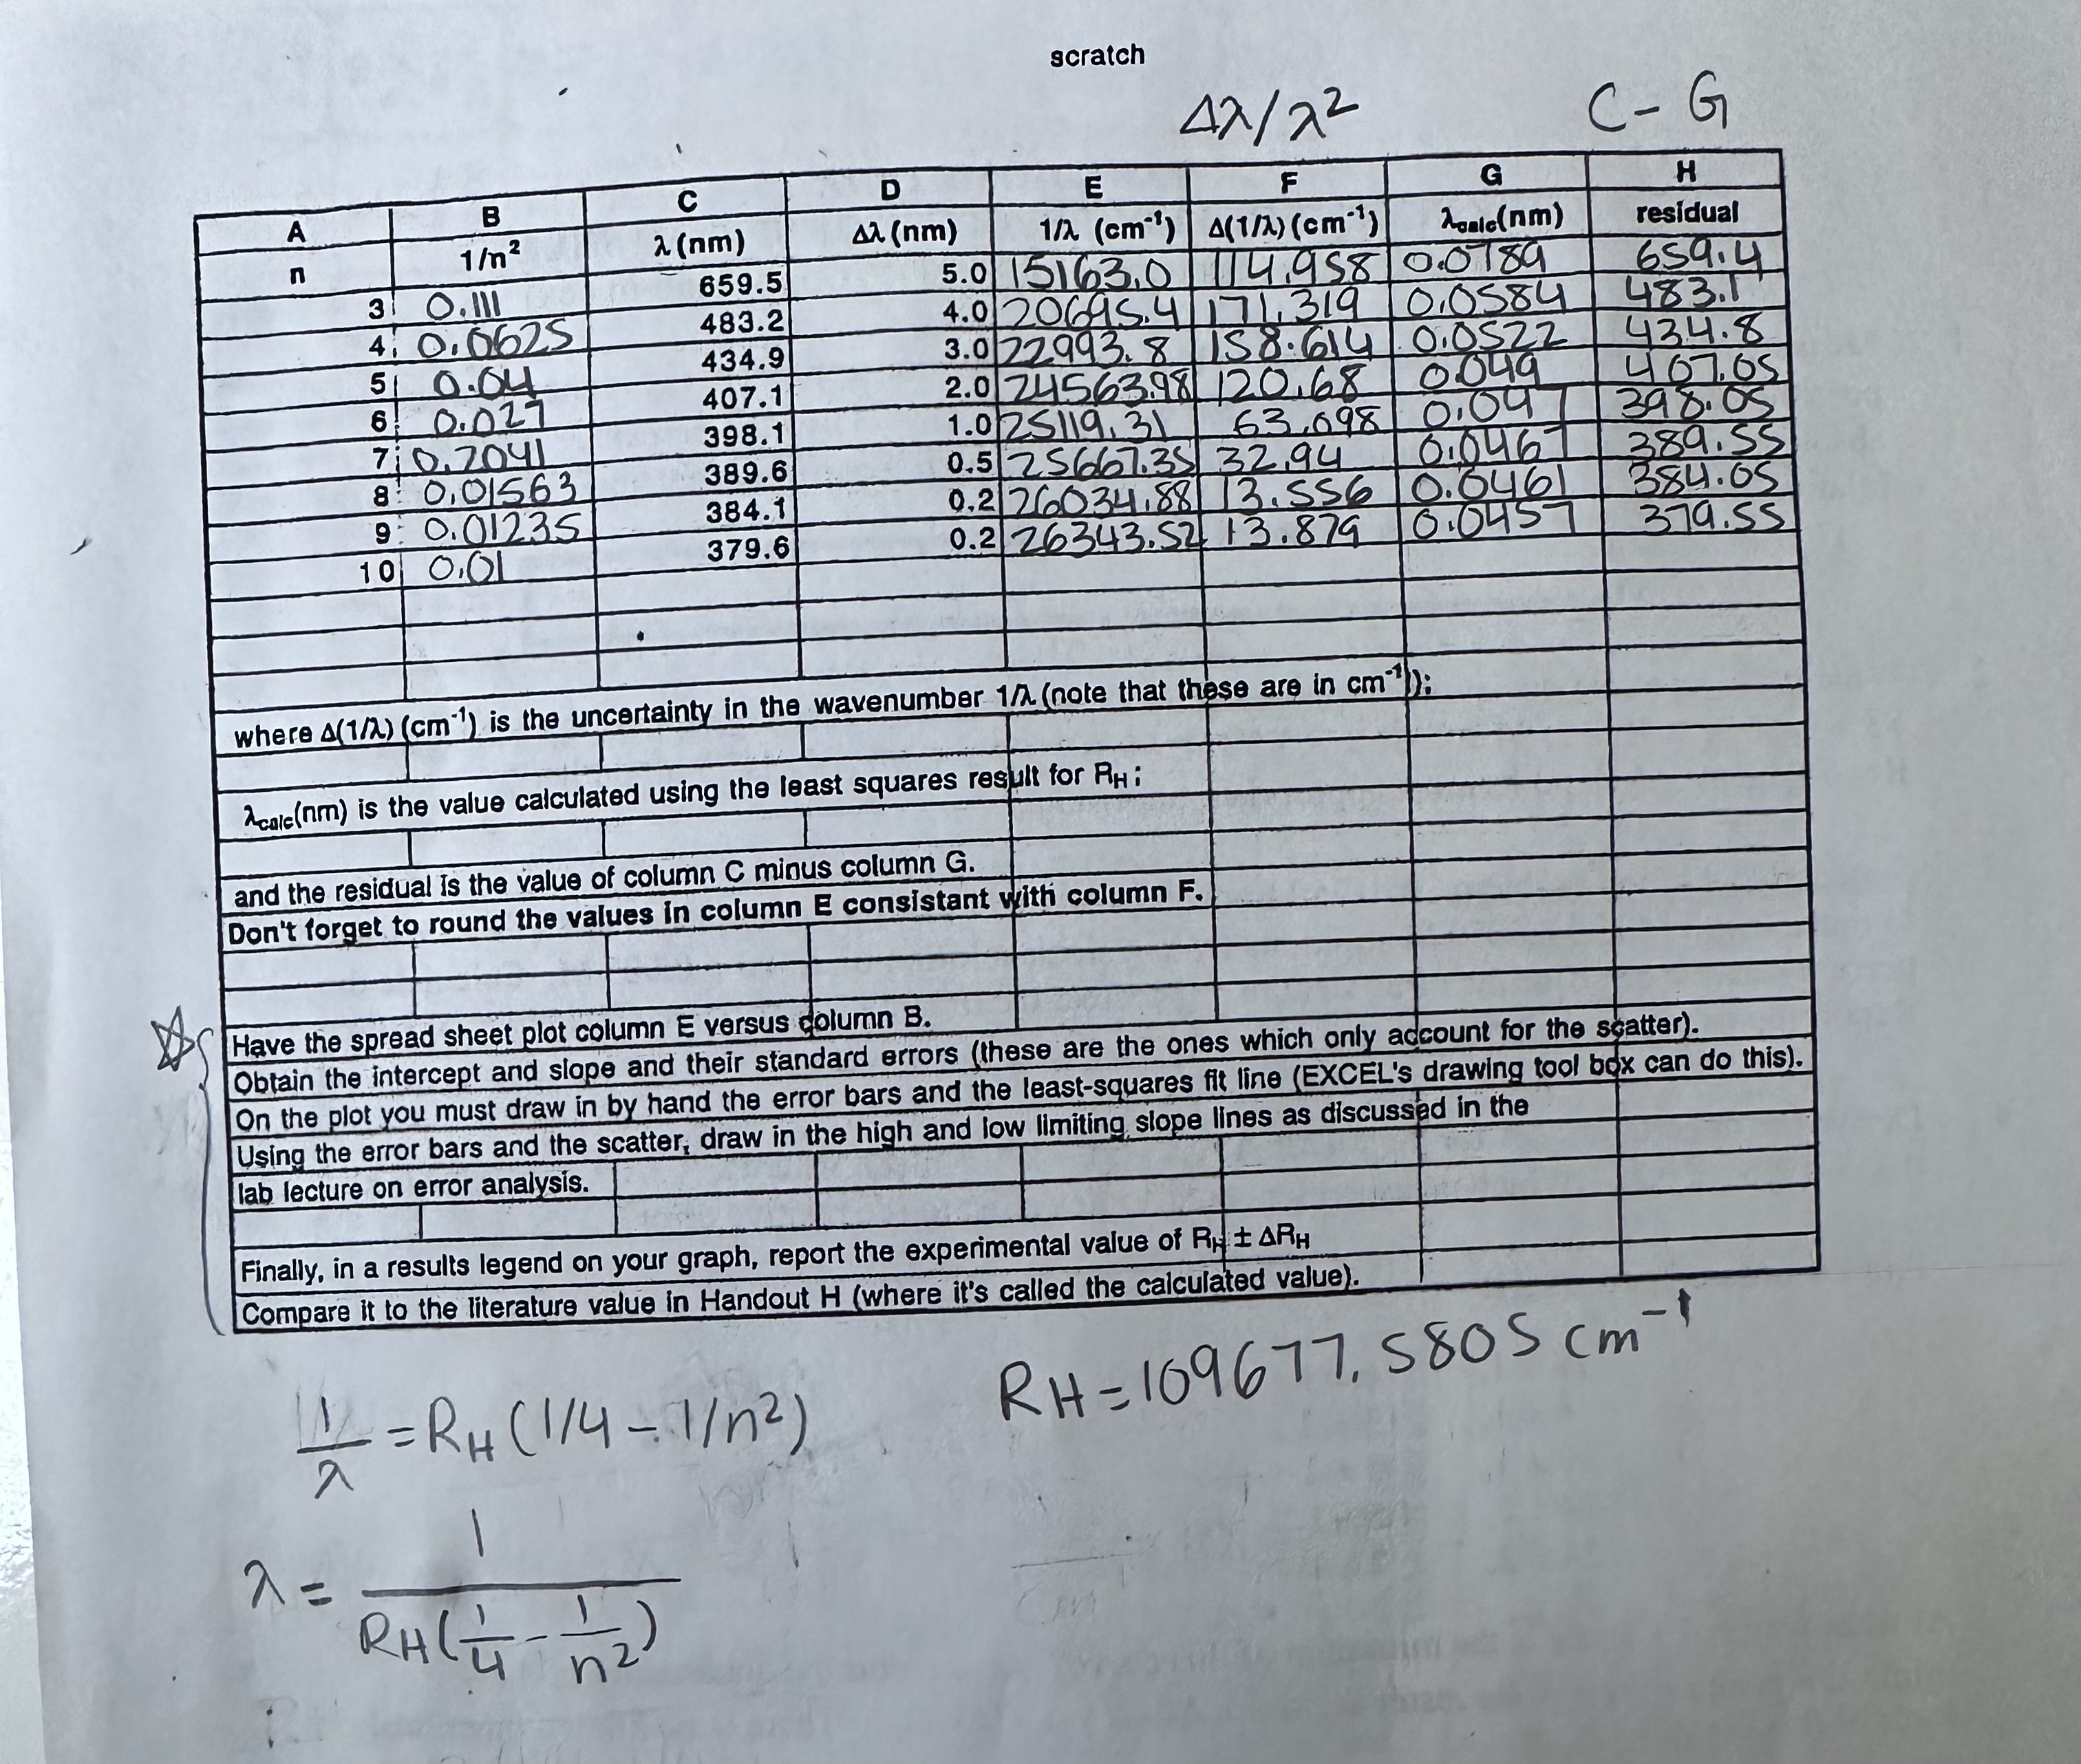 scratch
Δλ/λ² C - G
A B C D E F G H
n 1/n² λ (nm) Δλ (nm) 1/λ (cm⁻¹) Δ(1/λ) (cm⁻¹) λcalc(nm) residual
3 0.111 659.5 5.0 15163.0 114.958 0.0789 659.4
4 0.0625 483.2 4.0 20695.4 171.319 0.0584 483.1
5 0.04 434.9 3.0 22993.8 158.614 0.0522 434.8
6 0.027 407.1 2.0 24563.98 120.68 0.049 407.05
7 0.2041 398.1 1.0 25119.31 63.098 0.047 398.05
8 0.01563 389.6 0.5 25667.35 32.94 0.0467 389.55
9 0.01235 384.1 0.2 26034.88 13.556 0.0461 384.05
10 0.01 379.6 0.2 26343.52 13.879 0.0457 379.55
where Δ(1/λ) (cm⁻¹) is the uncertainty in the wavenumber 1/λ (note that these are in cm⁻¹));
λcalc(nm) is the value calculated using the least squares result for RH;
and the residual is the value of column C minus column G.
Don't forget to round the values in column E consistant with column F.
Have the spread sheet plot column E versus column B.
Obtain the intercept and slope and their standard errors (these are the ones which only account for the scatter).
On the plot you must draw in by hand the error bars and the least-squares fit line (EXCEL's drawing tool box can do this).
Using the error bars and the scatter, draw in the high and low limiting slope lines as discussed in the
lab lecture on error analysis.
Finally, in a results legend on your graph, report the experimental value of RH ± ΔRH
Compare it to the literature value in Handout H (where it's called the calculated value).
RH = 109677.5805 cm⁻¹
1/λ = RH (1/4 - 1/n²)
λ = 1/(RH(1/4 - 1/n²))